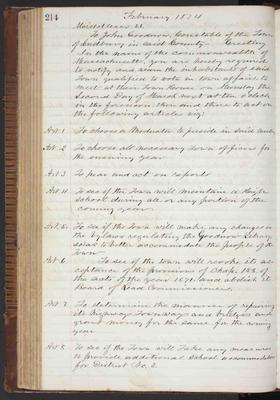 214
February 1874
Middlesex ss.
To John Goodnow, Constable of the Town
of Sudbury in said County Greeting
In the name of the Commonwealth of
Massachusetts, you are hereby required
to notify and warn the inhabitants of said
Town qualified to vote in town affairs to
meet at their Town House on Monday the
Second Day of March next at ten o'clock
in the forenoon then and there to act on
the following articles viz:
Art. 1 To choose a Moderator to preside in said meeting
Art. 2 To choose all necessary Town officers for
the ensuing year
Art. 3 To hear and act on reports
Art. 4 To see if the Town will maintain a High
school during all or any portion of the
coming year
Art. 5 To see if the Town will make any changes in
the by laws regulating the Goodnow Library
so as to better accommodate the people of the
town
Art. 6 To see if the town will revoke its ac-
ceptance of the provisions of Chap. 158 of
the acts of the year 1871. and abolish its
Board of Road Commissioners.
Art. 7 To determine the manner of repairing
its Highways Townways and bridges and
grant money for the same for the coming
year
Art. 8 To see if the Town will take any measures
to provide additional school accommodations
for District No. 2.